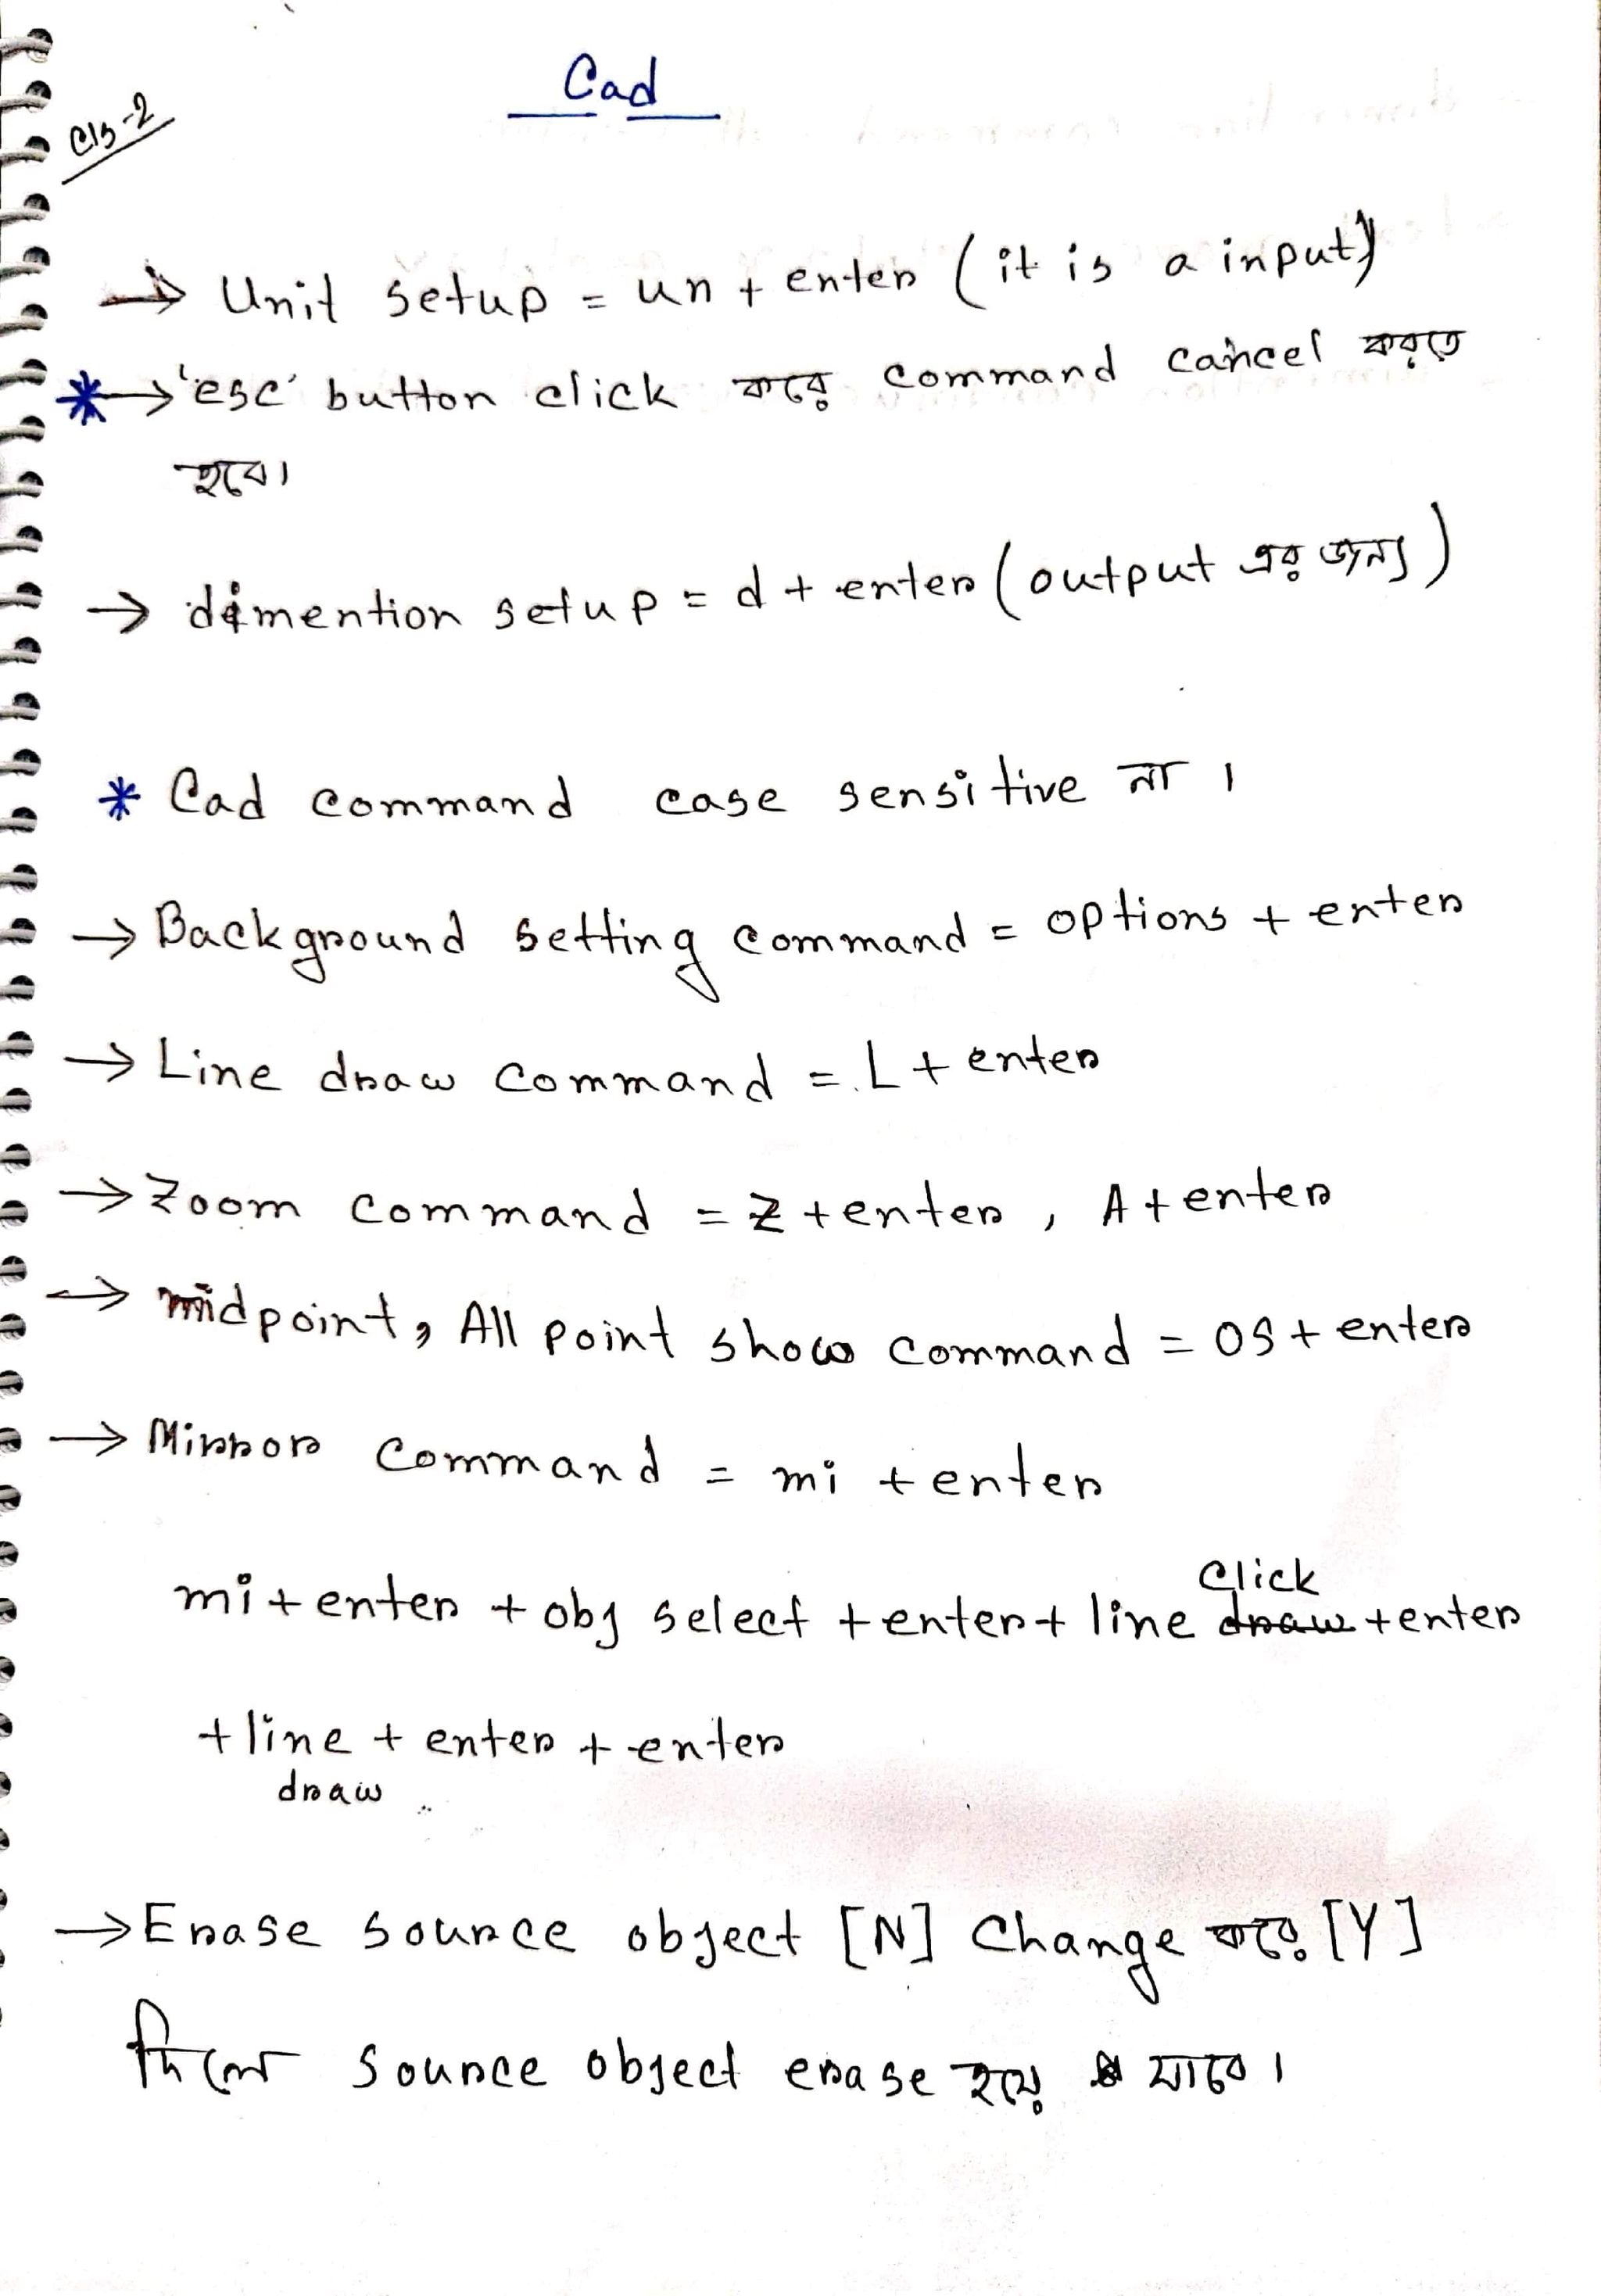 Cad
Cls-2
→ Unit setup = un + enter (it is a input)
* → 'esc' button click করে command cancel করতে
হবে।
→ dimention setup = d + enter (output এর জন্য)
* Cad command case sensitive না ।
→ Background setting command = options + enter
→ Line draw command = L + enter
→ Zoom command = Z + enter , A + enter
→ midpoint, All point show command = OS + enter
→ Mirror command = mi + enter
click
mi + enter + obj select + enter + line draw + enter
+ line + enter + enter
draw
→ Erase source object [N] Change করে [Y]
দিলে source object erase হয়ে যাবে ।